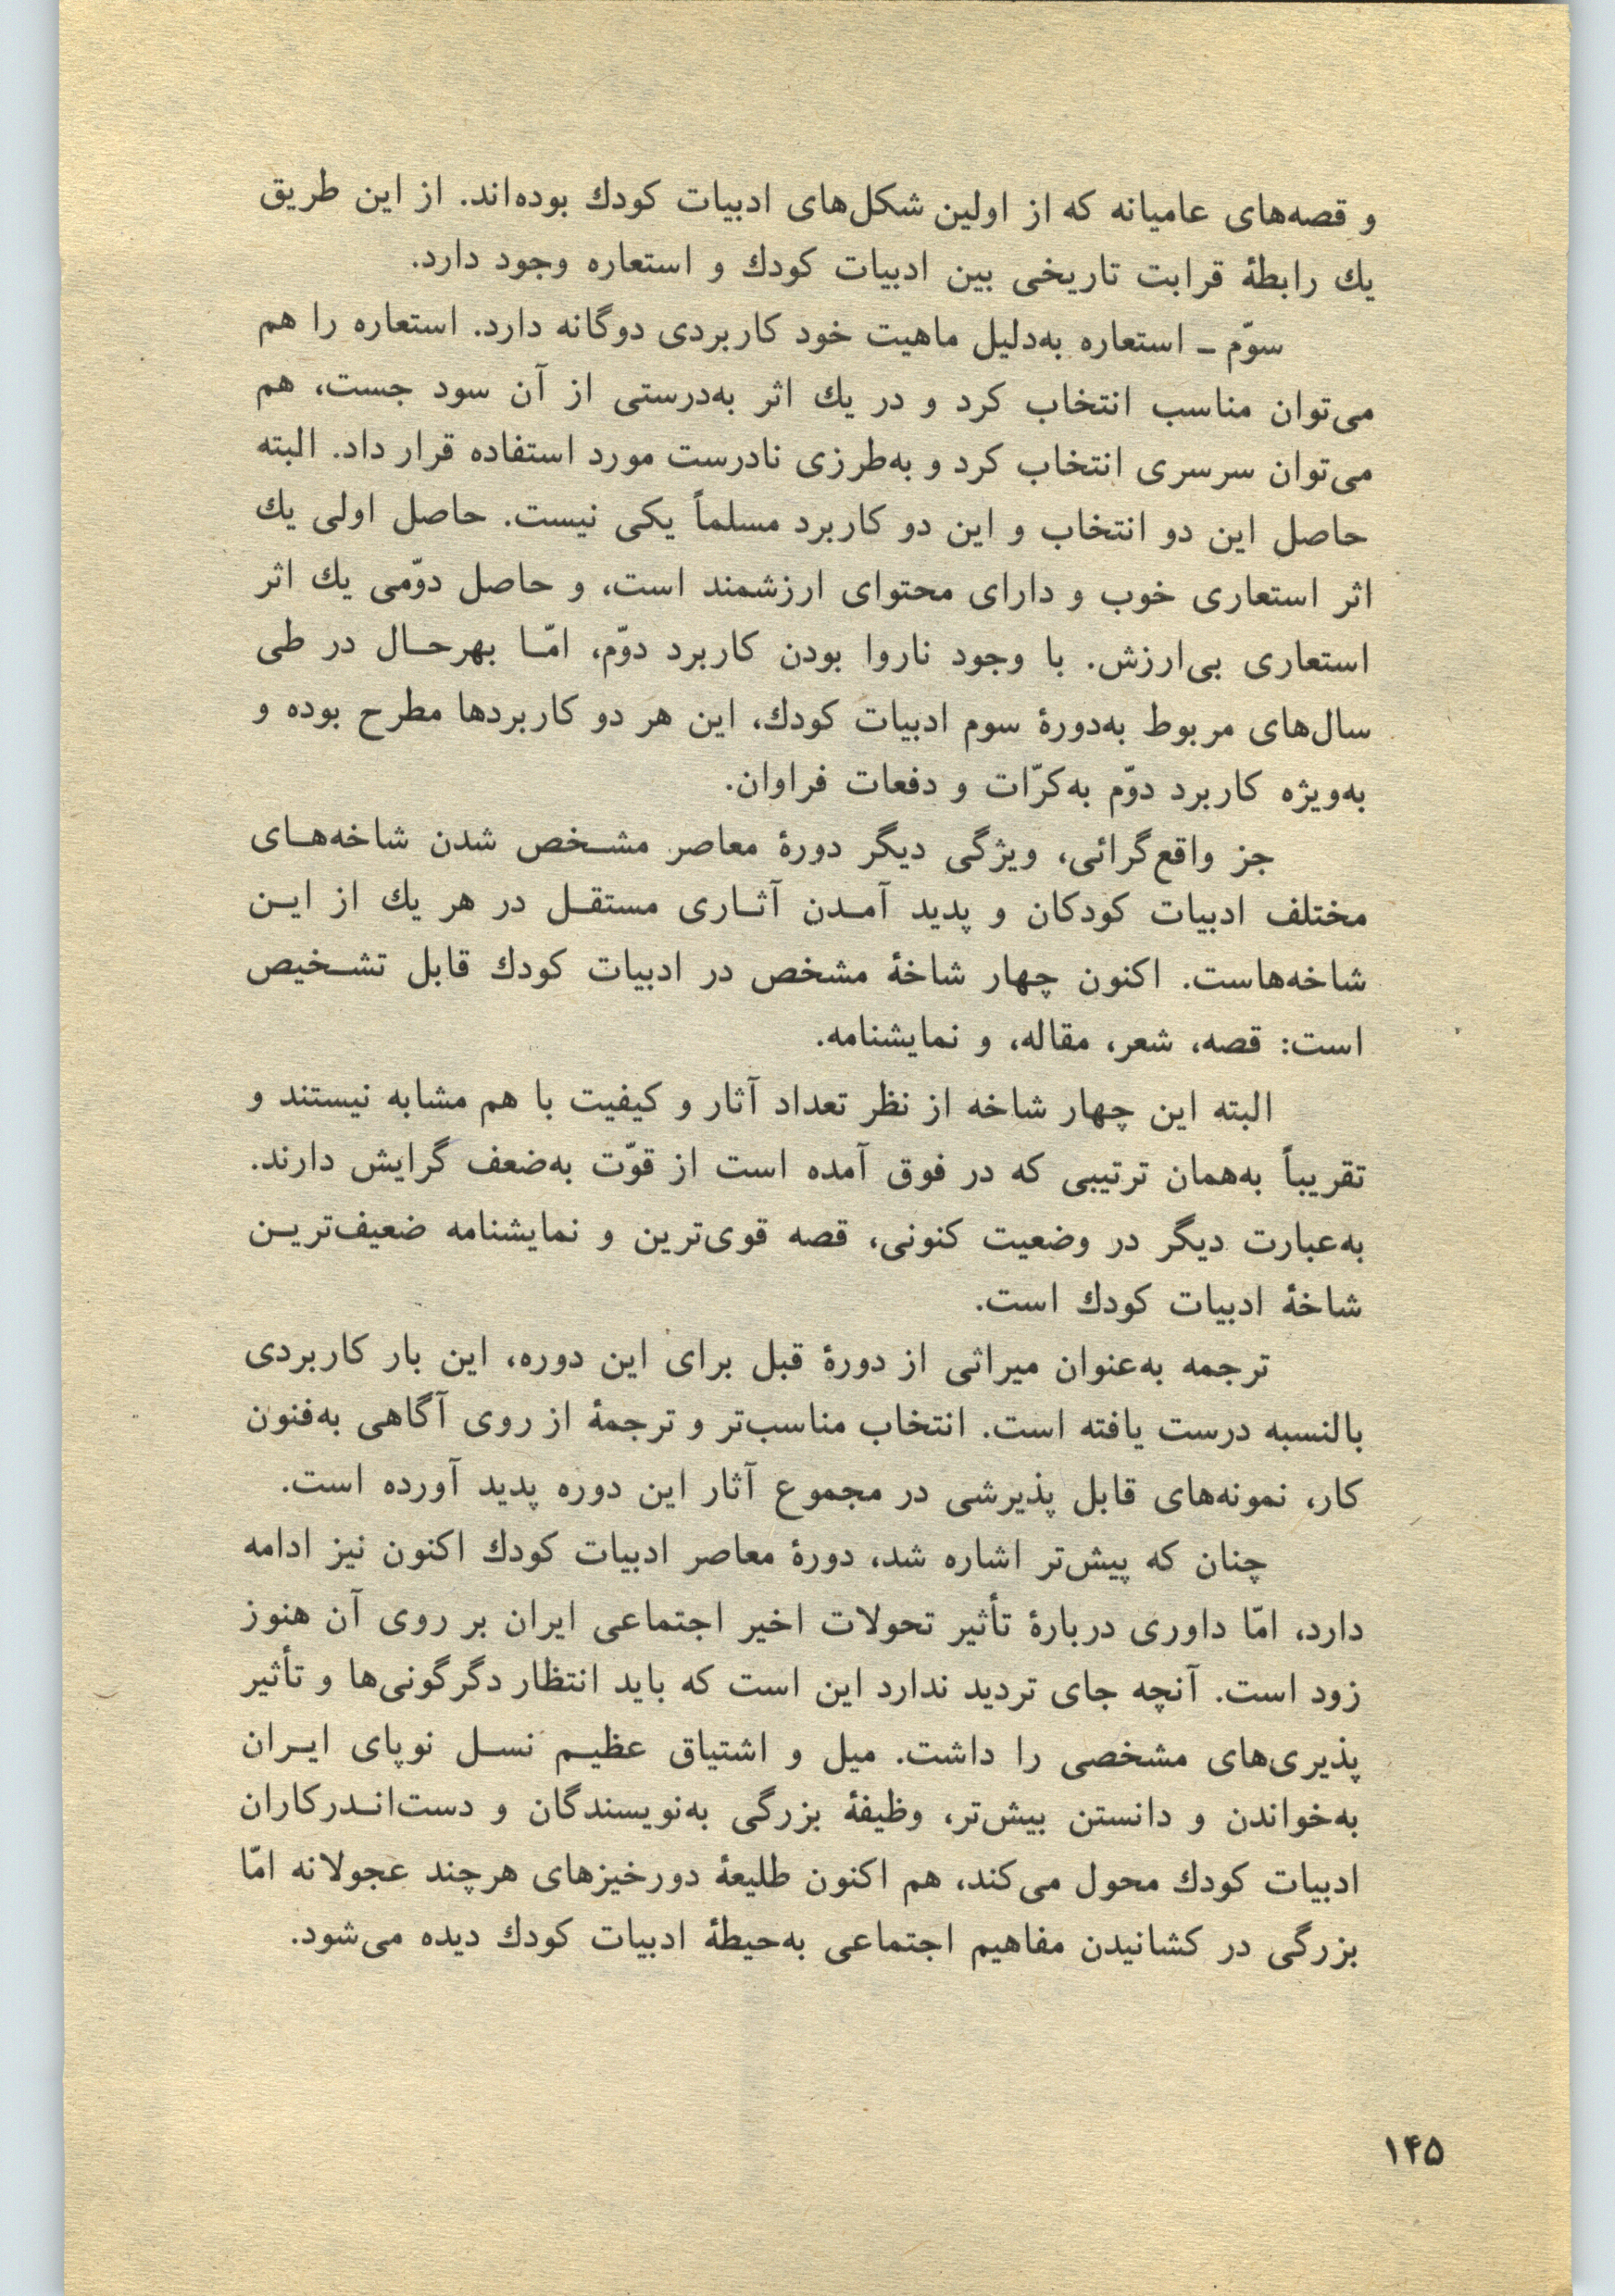 و قصه‌های عامیانه که از اولین شکل‌های ادبیات کودك بوده‌اند. از این طریق
یك رابطهٔ قرابت تاریخی بین ادبیات کودك و استعاره وجود دارد.
سوّم ـ استعاره به‌دلیل ماهیت خود کاربردی دوگانه دارد. استعاره را هم
می‌توان مناسب انتخاب کرد و در یك اثر به‌درستی از آن سود جست، هم
می‌توان سرسری انتخاب کرد و به‌طرزی نادرست مورد استفاده قرار داد. البته
حاصل این دو انتخاب و این دو کاربرد مسلماً یکی نیست. حاصل اولی یك
اثر استعاری خوب و دارای محتوای ارزشمند است، و حاصل دوّمی یك اثر
استعاری بی‌ارزش. با وجود ناروا بودن کاربرد دوّم، امّـا بهرحـال در طی
سال‌های مربوط به‌دورهٔ سوم ادبیات کودك، این هر دو کاربردها مطرح بوده و
به‌ویژه کاربرد دوّم به‌کرّات و دفعات فراوان.
جز واقع‌گرائی، ویژگی دیگر دورهٔ معاصر مشـخص شدن شاخه‌هـای
مختلف ادبیات کودکان و پدید آمـدن آثـاری مستقـل در هر یك از ایـن
شاخه‌هاست. اکنون چهار شاخهٔ مشخص در ادبیات کودك قابل تشـخیص
است: قصه، شعر، مقاله، و نمایشنامه.
البته این چهار شاخه از نظر تعداد آثار و کیفیت با هم مشابه نیستند و
تقریباً به‌همان ترتیبی که در فوق آمده است از قوّت به‌ضعف گرایش دارند.
به‌عبارت دیگر در وضعیت کنونی، قصه قوی‌ترین و نمایشنامه ضعیف‌تریـن
شاخهٔ ادبیات کودك است.
ترجمه به‌عنوان میراثی از دورهٔ قبل برای این دوره، این بار کاربردی
بالنسبه درست یافته است. انتخاب مناسب‌تر و ترجمهٔ از روی آگاهی به‌فنون
کار، نمونه‌های قابل پذیرشی در مجموع آثار این دوره پدید آورده است.
چنان که پیش‌تر اشاره شد، دورهٔ معاصر ادبیات کودك اکنون نیز ادامه
دارد، امّا داوری دربارهٔ تأثیر تحولات اخیر اجتماعی ایران بر روی آن هنوز
زود است. آنچه جای تردید ندارد این است که باید انتظار دگرگونی‌ها و تأثیر
پذیری‌های مشخصی را داشت. میل و اشتیاق عظیـم نسـل نوپای ایـران
به‌خواندن و دانستن بیش‌تر، وظیفهٔ بزرگی به‌نویسندگان و دست‌انـدرکاران
ادبیات کودك محول می‌کند، هم اکنون طلیعهٔ دورخیزهای هرچند عجولانه امّا
بزرگی در کشانیدن مفاهیم اجتماعی به‌حیطهٔ ادبیات کودك دیده می‌شود.
۱۴۵